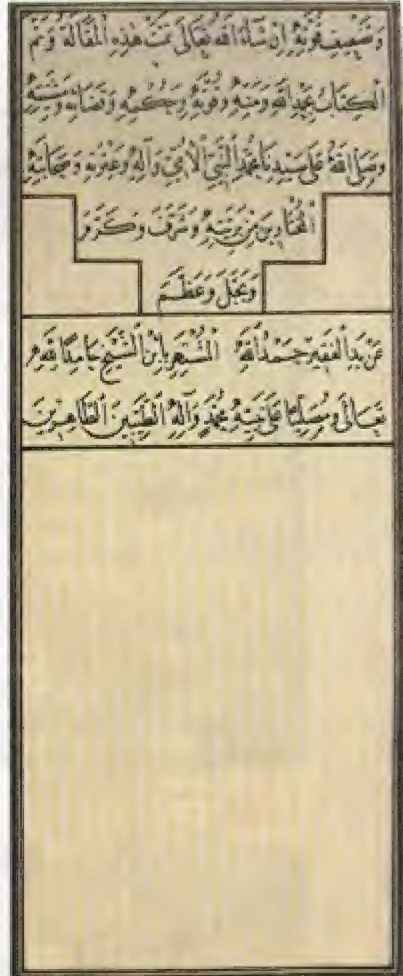 وَضَعِيفِ قُوَّتِهِ اِنْ شَاءَ اللهُ تَعَالَى تَمَّتْ هٰذِهِ الْمَقَالَةُ وَتَمَّ
الْكِتَابُ بِحَمْدِ اللهِ وَمَنِّهِ وَقُوَّتِهِ وَحُكْمِهِ وَقَضَائِهِ وَمَشِيَّتِهِ
وَصَلَّى اللهُ عَلَى سَيِّدِنَا مُحَمَّدٍ النَّبِيِّ الْاُمِّيِّ وَآلِهِ وَعِتْرَتِهِ وَصَحَابَتِهِ
الْمُخْتَارِينَ مِنْ بَرِيَّتِهِ وَشَرَّفَ وَكَرَّمَ
وَبَجَّلَ وَعَظَّمَ
عَنْ يَدِ الْفَقِيرِ حَمْدُ اللهِ الْمُشْتَهِرِ بِابْنِ الشَّيْخِ حَامِدًا لِلّٰهِ
تَعَالَى وَمُصَلِّيًا عَلَى نَبِيِّهِ مُحَمَّدٍ وَآلِهِ الطَّيِّبِينَ الطَّاهِرِينَ